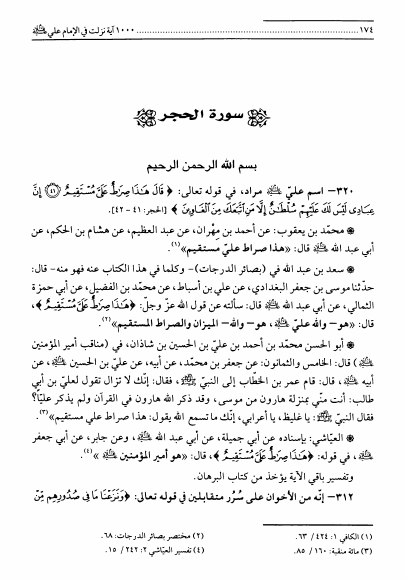 ١٧٤ ........ ١٠٠٠ آية نزلت في الإمام علي ﷺ
سورة الحجر
بسم الله الرحمن الرحيم
٣٢٠- اسم عليّ ﷺ مراد، في قوله تعالى: ﴿ قَالَ هَٰذَا صِرَٰطٌ عَلَيَّ مُسْتَقِيمٌ ﴿٤١﴾ إِنَّ
عِبَادِى لَيْسَ لَكَ عَلَيْهِمْ سُلْطَٰنٌ إِلَّا مَنِ ٱتَّبَعَكَ مِنَ ٱلْغَاوِينَ ﴾ [الحجر: ٤١ - ٤٢].
* محمّد بن يعقوب: عن أحمد بن مِهْران، عن عبد العظيم، عن هشام بن الحكم، عن
أبي عبد الله ﷺ قال: «هذا صراط عليّ مستقيم»(١).
* سعد بن عبد الله في (بصائر الدرجات)- وكلما في هذا الكتاب عنه فهو منه- قال:
حدّثنا موسى بن جعفر البغدادي، عن علي بن أسباط، عن محمّد بن الفضيل، عن أبي حمزة
الثمالي، عن أبي عبد الله ﷺ قال: سألته عن قول الله عزّ وجلّ: ﴿هَٰذَا صِرَٰطٌ عَلَيَّ مُسْتَقِيمٌ﴾،
قال: «هو- والله عليّ ﷺ، هو- والله- الميزان والصراط المستقيم»(٢).
* أبو الحسن محمّد بن أحمد بن علي بن الحسين بن شاذان، في (مناقب أمير المؤمنين
ﷺ) قال: الخامس والثمانون: عن جعفر بن محمد، عن أبيه، عن علي بن الحسين ﷺ، عن
أبيه ﷺ قال: قام عمر بن الخطاب إلى النبيّ ﷺ، فقال: إنّك لا تزال تقول لعليّ بن أبي
طالب: أنت منّي بمنزلة هارون من موسى، وقد ذكر الله هارون في القرآن ولم يذكر عليّاً؟
فقال النبيّ ﷺ: يا غليظ، يا أعرابي، إنّك ما تسمع الله يقول: هذا صراط علي مستقيم»(٣).
* العيّاشي: بإسناده عن أبي جميلة، عن أبي عبد الله ﷺ، وعن جابر، عن أبي جعفر
ﷺ، في قوله: ﴿هَٰذَا صِرَٰطٌ عَلَيَّ مُسْتَقِيمٌ﴾ قال: «هو أمير المؤمنين ﷺ»(٤).
وتفسير باقي الآية يؤخذ من كتاب البرهان.
٣١٢- إنّه من الأخوان على سُرُر متقابلين في قوله تعالى: ﴿وَنَزَعْنَا مَا فِى صُدُورِهِم مِّنْ
(١) الكافي ١: ٤٢٤ / ٦٣.
(٢) مختصر بصائر الدرجات: ٦٨.
(٣) مائة منقبة: ١٦٠ / ٨٥.
(٤) تفسير العيّاشي ٢: ٢٤٢ / ١٥.